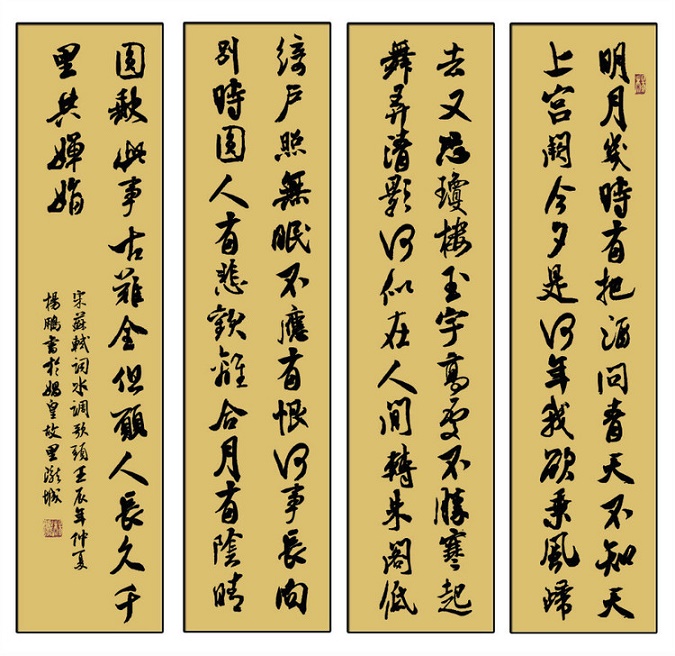 明月幾時有把酒問青天不知天
上宮闕今夕是何年我欲乘風歸
去又恐瓊樓玉宇高處不勝寒起
舞弄清影何似在人間轉朱閣低
綺戶照無眠不應有恨何事長向
別時圓人有悲歡離合月有陰晴
圓缺此事古難全但願人長久千
里共嬋娟
宋蘇軾詞水調歌頭壬辰年仲夏
楊鵬書於媧皇故里隴城